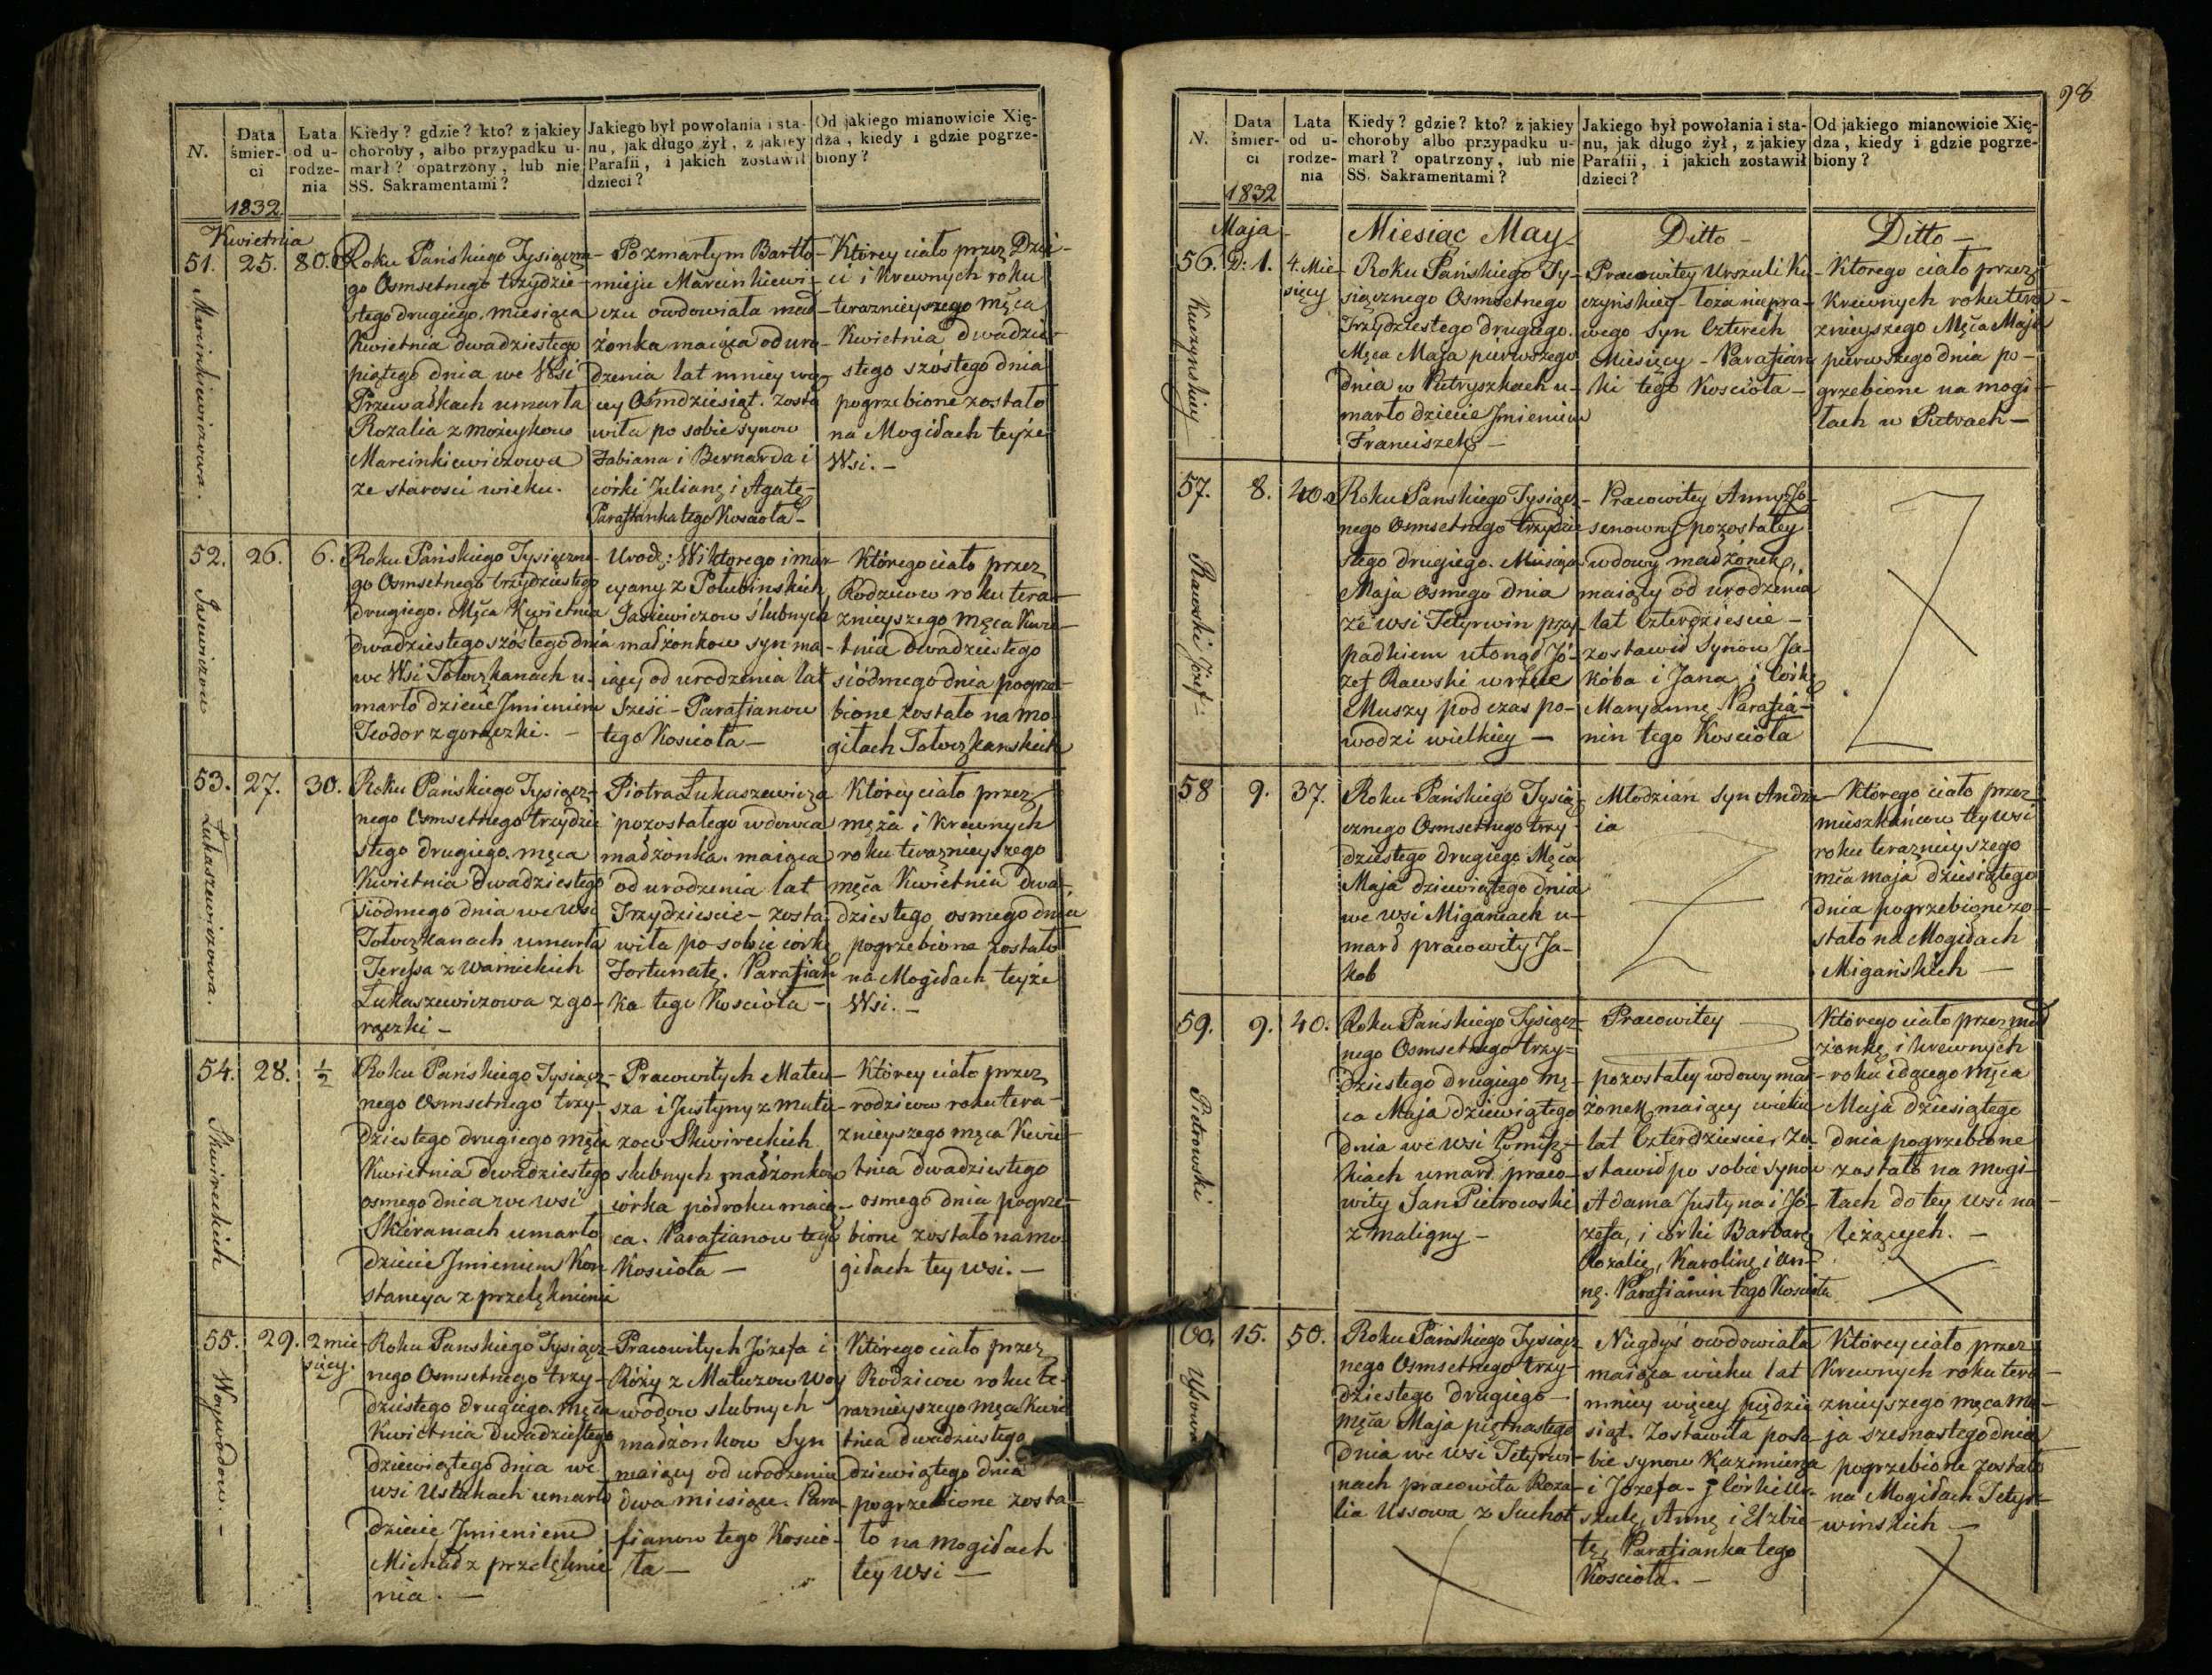 N.
Data śmier-ci
1832
Lata od u-rodze-nia
Kiedy? gdzie? kto? z jakiey
choroby, albo przypadku u-
marł? opatrzony, lub nie
SS. Sakramentami?
Jakiego był powołania i sta-
nu, jak długo żył, z jakiey
Parafii, i jakich zostawił
dzieci?
Od jakiego mianowicie Xię-
dza, kiedy i gdzie pogrze-
biony?
Kwietnia
51.
25.
80.
Marcinkiewiczowa.
Roku Pańskiego Tysiączne-
go Osmsetnego trzydzie-
stego drugiego. miesiąca
Kwietnia dwadziestego
piątego dnia we Wsi
Przewałkach umarła
Rozalia z możeykow
Marcinkiewiczowa
ze starosci wieku.
Po zmarłym Bartło-
mieju Marcinkiewi-
czu owdowiała mał-
żonka maiąca od uro-
dzenia lat mniey wię-
cey Ośmdziesiąt. zosta
wiła po sobie synow
Fabiana i Bernarda i
corki Julianę i Agatę-
Parafianka tego Koscioła-
Którey ciało przez Dzie-
ci i krewnych roku
teraznieyszego męca
Kwietnia dwadzie-
stego szóstego dnia
pogrzebione zostało
na Mogiłach teyże
Wsi. -
52.
26.
6.
Jasiewiczow
Roku Pańskiego Tysiączne-
go Osmsetnego trzydziestego
drugiego. Męca Kwietnia
dwadziestego szóstego dnia
we Wsi Tołoczkanach u-
marło dziecie Jmieniem
Teodor z gorączki. -
Urodz: Wiktorego i mar-
cyany z Połubinskich
Jasiewiczow slubnych
małżonkow syn ma-
iący od urodzenia lat
Sześć - Parafianow
tego Kosciola -
Którego ciało przez
Rodzicow roku tera-
znieyszego męca Kwie-
tnia dwadziestego
siódmego dnia pogrze-
bione zostało na mo-
giłach Tołoczkanskich
53.
27.
30.
Łukaszewiczowa.
Roku Pańskiego Tysiącz-
nego Osmsetnego trzydzie
stego drugiego. męca
Kwietnia dwadziestego
siódmego dnia we wsi
Tołoczkanach umarła
Teressa z Warnickich
Łukaszewiczowa z go-
rączki -
Piotra Łukaszewicza
pozostałego wdowca
małżonka. maiąca
od urodzenia lat
Trzydziescie - zosta
wiła po sobie córkę
Fortunatę. Parafian
ka tego Kosciola -
Którey ciało przez
męża i krewnych
roku teraznieyszego
męca Kwietnia dwa-
dziestego osmego dnia
pogrzebione zostało
na Mogiłach teyże
Wsi. -
54.
28.
½
Skwireckich
Roku Pańskiego Tysiącz-
nego Osmsetnego trzy-
dziestego drugiego męca
Kwietnia dwadziestego
osmego dnia we wsi
Skieraniach umarło
dziecie Jmieniem Kon
stancya z przelęknienia
Pracowitych Mateu-
sza i Justyny z Matu-
zow Skwireckich
slubnych małżonkow
corka pół roku maią-
ca. Parafianow tego
Kosciola -
Którey ciało przez
rodzicow roku tera-
znieyszego męca Kwie-
tnia dwadziestego
osmego dnia pogrze-
bione zostało na mo
giłach tey wsi. -
55.
29.
2 mie-
sięcy.
Woywodow. -
Roku Panskiego Tysiącz-
nego Osmsetnego trzy-
dziestego drugiego. męca
Kwietnia dwadziestego
dziewiątego dnia we
wsi Ustukach umarło
dziecie Jmieniem
Michał z przelęknie
nia. -
Pracowitych Józefa i
Róży z Matuzow Woy
wodow slubnych
małżonkow Syn
maiący od urodzenia
dwa miesiące. Para-
fianow tego Koscio-
ła -
Którego ciało przez
Rodzicow roku te-
raznieyszego męca Kwie
tnia dwadziestego
dziewiątego dnia
pogrzebione zosta-
ło na mogiłach
tey wsi -
98
N.
Data śmier-ci
1832
Lata od u-rodze-nia
Kiedy? gdzie? kto? z jakiey
choroby albo przypadku u-
marł? opatrzony, lub nie
SS. Sakramentami?
Jakiego był powołania i sta-
nu, jak długo żył, z jakiey
Parafii, i jakich zostawił
dzieci?
Od jakiego mianowicie Xię-
dza, kiedy i gdzie pogrze-
biony?
Maja
Miesiąc May
Ditto -
Ditto -
56.
D: 1.
4. Mie
sięcy
Kuczynskiey
Roku Pańskiego Ty-
siącznego Osmsetnego
Trzydziestego drugiego.
Męca Maja pierwszego
dnia w Putryszkach u-
marło dziecie Jmieniem
Franciszek -
Pracowitey Urszuli Ku
czyńskiey - łoża niepra-
wego syn Czterech
Miesięcy - Parafian
ki tego Kosciola -
Ktorego ciało przez
Krewnych roku tera-
znieyszego Męca Maja
pierwszego dnia po-
grzebione na mogi-
łach w Putrach -
57.
8.
40.
Rawski Józef
Roku Panskiego Tysiącz-
nego Osmsetnego trzydzie
stego drugiego. Miesiąca
Maja osmego dnia
ze wsi Tetyrwin przy-
padkiem utonął Jó-
zef Rawski w rzece
Muszy podczas po-
wodzi wielkiey -
Pracowitey Anny z Jo-
senowny pozostałey
wdowy małżonek,
maiący od urodzenia
lat Czterdziescie -
zostawił Synow Ja-
kóba i Jana, i Córkę
Maryannę. Parafia-
nin tego Kosciola
58
9.
37.
Roku Pańskiego Tysią
cznego Osmsetnego trzy-
dziestego drugiego Męca
Maja dziewiątego dnia
we wsi Miganiach u-
marł pracowity Ja-
kob
Młodzian syn Andrze
ia
Którego ciało przez
mieszkańcow tey wsi
roku teraznieyszego
mca maja dziesiątego
dnia pogrzebione zo-
stało na Mogiłach
Migańskich -
59.
9.
40.
Pietrowski
Roku Pańskiego Tysiącz-
nego Osmsetnego trzy=
dziestego drugiego mę-
ca Maja dziewiątego
dnia we wsi
kiach umarł praco-
wity Jan Pietrowski
z maligny -
Pracowitey
pozostałey wdowy mał-
żonek, maiący wieku
lat Czterdziescie, zo-
stawił po sobie synow
Adama Justyna i Jó-
zefa, i córki Barbarę
Rozalię, Karolinę i An-
nę. Parafianin tego Kosciola
Którego ciało przez mał
żonkę i krewnych
roku idącego męca
Maja dziesiątego
dnia pogrzebione
zostało na mogi-
łach do tey wsi na-
leżących. -
60.
15.
50.
Usowa
Roku Pańskiego Tysiącz
nego Osmsetnego trzy-
dziestego drugiego -
męca Maja piętnastego
dnia we wsi Tetyrwi-
nach pracowita Roza-
lia Ussowa z Suchot
Niegdyś owdowiała
maiąca wieku lat
mniey więcey pięćdzie
siąt. Zostawiła po so-
bie synow Kazimierza
i Józefa - i Córki Ur-
szulę, Annę i Elzbie-
tę, Parafianka tego
Kosciola. -
Którey ciało przez
Krewnych roku tera-
znieyszego męca Ma-
ja szesnastego dnia
pogrzebione zostało
na Mogiłach Tetyr-
winskich -